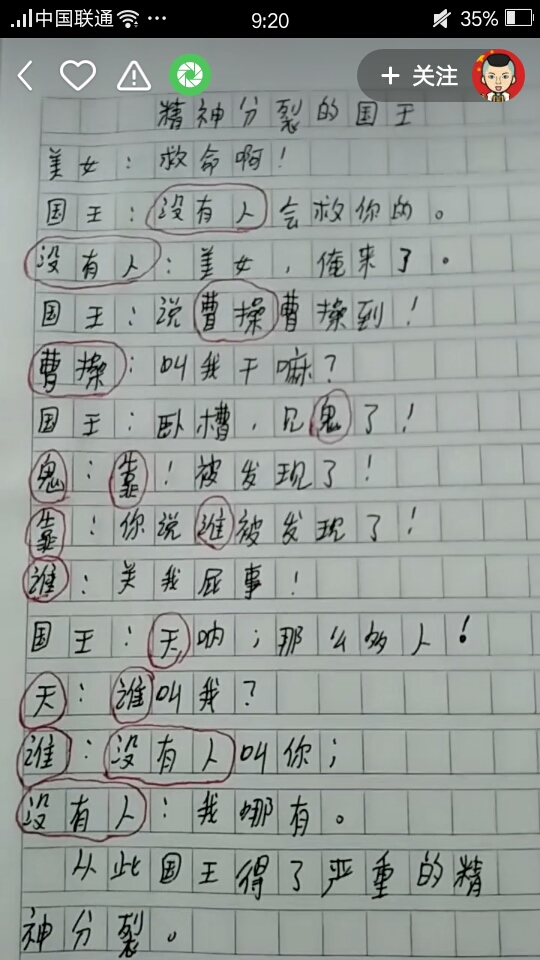 中国联通 ... 9:20 35%
+ 关注
精神分裂的国王
美女：救命啊！
国王：没有人会救你的。
没有人：美女，俺来了。
国王：说曹操曹操到！
曹操：叫我干嘛？
国王：卧槽，见鬼了！
鬼：靠！被发现了！
靠：你说谁被发现了！
谁：关我屁事！
国王：天呐；那么多人！
天：谁叫我？
谁：没有人叫你；
没有人：我哪有。
从此国王得了严重的精
神分裂。